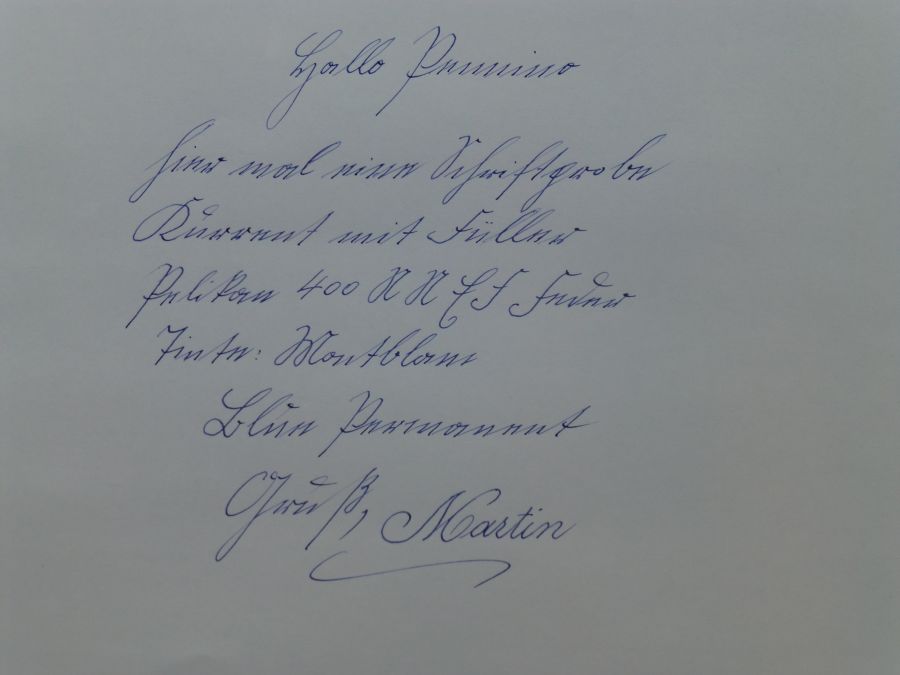 Hallo Pennino
hier mal eine Schriftprobe
Kurrent mit Füller
Pelikan 400 NN EF Feder
Tinte: Montblanc
Blue Permanent
Gruß, Martin